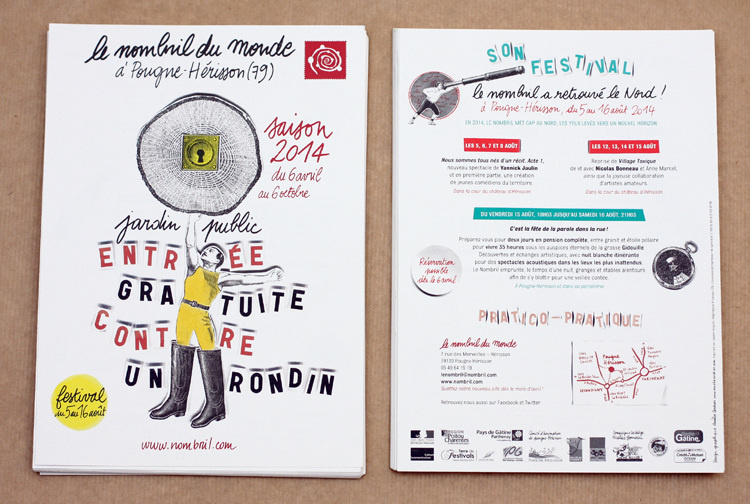 le nombril du monde
à Pougne-Hérisson (79)
saison
2014
du 6 avril
au 6 octobre
jardin public
ENTRÉE
GRATUITE
CONTRE
UN RONDIN
festival
du 5 au 16 août
www.nombril.com
SON
FESTIVAL
le nombril a retrouvé le Nord !
à Pougne-Hérisson, du 5 au 16 août 2014
EN 2014, LE NOMBRIL MET CAP AU NORD, LES YEUX LEVÉS VERS UN NOUVEL HORIZON
LES 5, 6, 7 et 8 AOÛT
Nous sommes tous nés d'un récit. Acte 1,
nouveau spectacle de Yannick Jaulin
et en première partie, une création
de jeunes comédiens du territoire
Dans la cour du château d'Hérisson
LES 12, 13, 14 ET 15 AOÛT
Reprise de Village Toxique
de et avec Nicolas Bonneau et Anne Marcel,
ainsi que la joyeuse collaboration
d'artistes amateurs.
Dans la cour du château d'Hérisson
DU VENDREDI 15 AOÛT, 19H03 JUSQU'AU SAMEDI 16 AOÛT, 21H03
C'est la fête de la parole dans la rue !
Préparez-vous pour deux jours en pension complète, entre granit et étoile polaire
pour vivre 35 heures sous les auspices éternels de la grasse Gidouille.
Découvertes et échanges artistiques, avec nuit blanche itinérante
pour des spectacles acoustiques dans les lieux les plus inattendus.
Le Nombril emprunte, le temps d'une nuit, granges et étables alentours
afin de s'y blottir pour une veillée contée.
À Pougne-Hérisson et dans sa périphérie
Réservation
possible
dès le 6 avril
PRATICO-PRATIQUE
le nombril du monde
7 rue des Merveilles – Hérisson
79130 Pougne-Hérisson
05 49 64 19 19
lenombril@nombril.com
www.nombril.com
Guettez notre nouveau site dès le mois d'avril !
Retrouvez nous aussi sur Facebook et Twitter
Pougne
Hérisson
RÉGION
Poitou
Charentes
Pays de Gâtine
Parthenay
Terre de
Festivals
Gâtine